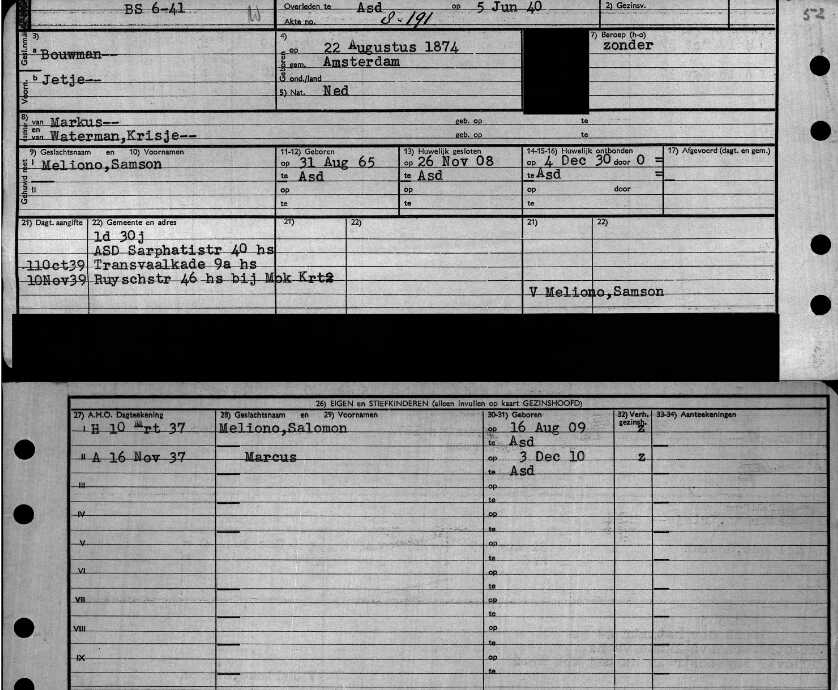 BS 6-41
Overleden te Asd op 5 Jun 40
2) Gezinsv.
Akte no. 8-191
52
3)
a Bouwman--
b Jetje--
4)
Geboren
op 22 Augustus 1874
gem. Amsterdam
ond./land
5) Nat. Ned
7) Beroep (h-o)
zonder
8) van Markus-- geb. op te
en
van Waterman,Krisje-- geb. op te
Gehuwd met
9) Geslachtsnaam en 10) Voornamen
I Meliono,Samson
II
11-12) Geboren
op 31 Aug 65
te Asd
op
te
13) Huwelijk gesloten
op 26 Nov 08
te Asd
op
te
14-15-16) Huwelijk ontbonden
op 4 Dec 30 door O =
te Asd =
op door
te
17) Afgevoerd (dagt. en gem.)
21) Dagt. aangifte 22) Gemeente en adres 21) 22) 21) 22)
1d 30j
ASD Sarphatistr 40 hs
11Oct39 Transvaalkade 9a hs
10Nov39 Ruyschstr 46 hs bij Mok Krt2
V Meliono,Samson
26) EIGEN en STIEFKINDEREN (alleen invullen op kaart GEZINSHOOFD)
27) A.H.O. Dagteekening 28) Geslachtsnaam en 29) Voornamen 30-31) Geboren 32) Verh. gezinsh. 33-34) Aanteekeningen
I H 10 Mrt 37 Meliono,Salomon op 16 Aug 09 z
te Asd
II A 16 Nov 37 Marcus op 3 Dec 10 z
te Asd
III op
te
IV op
te
V op
te
VI op
te
VII op
te
VIII op
te
IX op
te